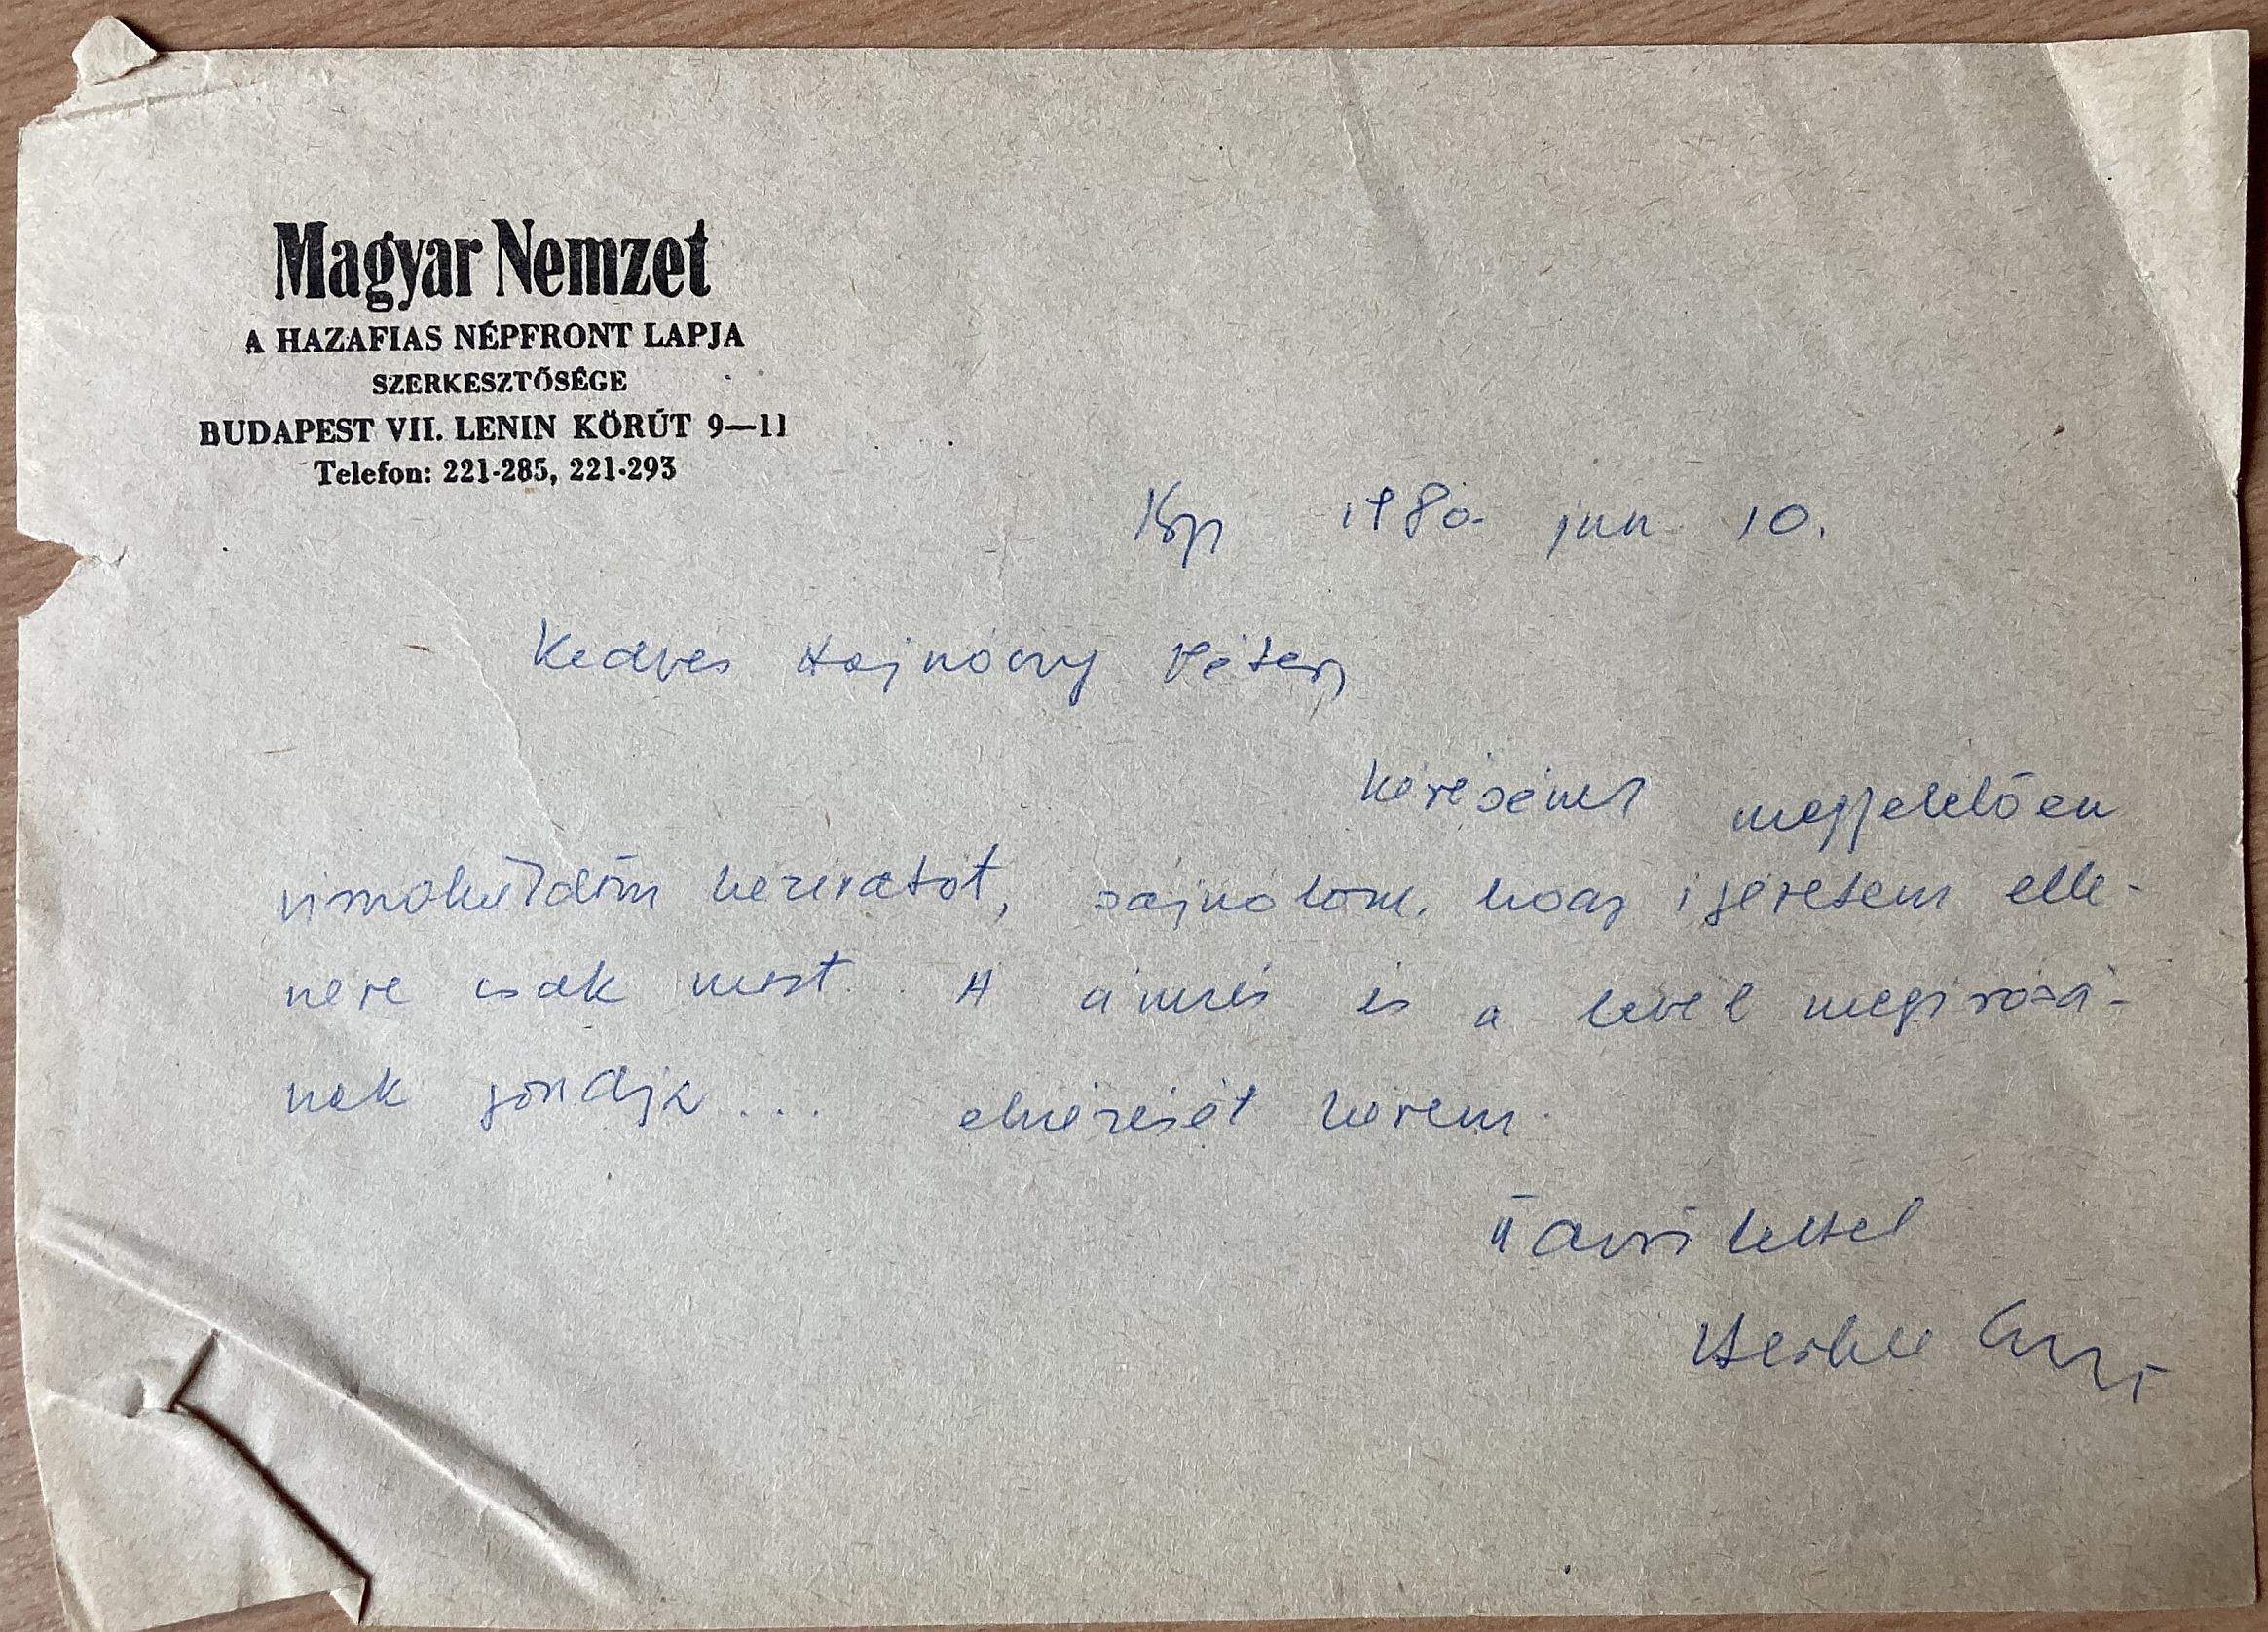 Magyar Nemzet
A HAZAFIAS NÉPFRONT LAPJA
SZERKESZTŐSÉGE
BUDAPEST VII. LENIN KÖRÚT 9—11
Telefon: 221-285, 221-293
Bp 1980. jun 10.
Kedves Hajnóczy Péter,
kérésének megfelelően
visszaküldöm kéziratát, sajnálom, hogy igéretem elle-
nére csak most. A címzés és a levél megirásá-
nak gondja... elnézését kérem.
Üdvözlettel